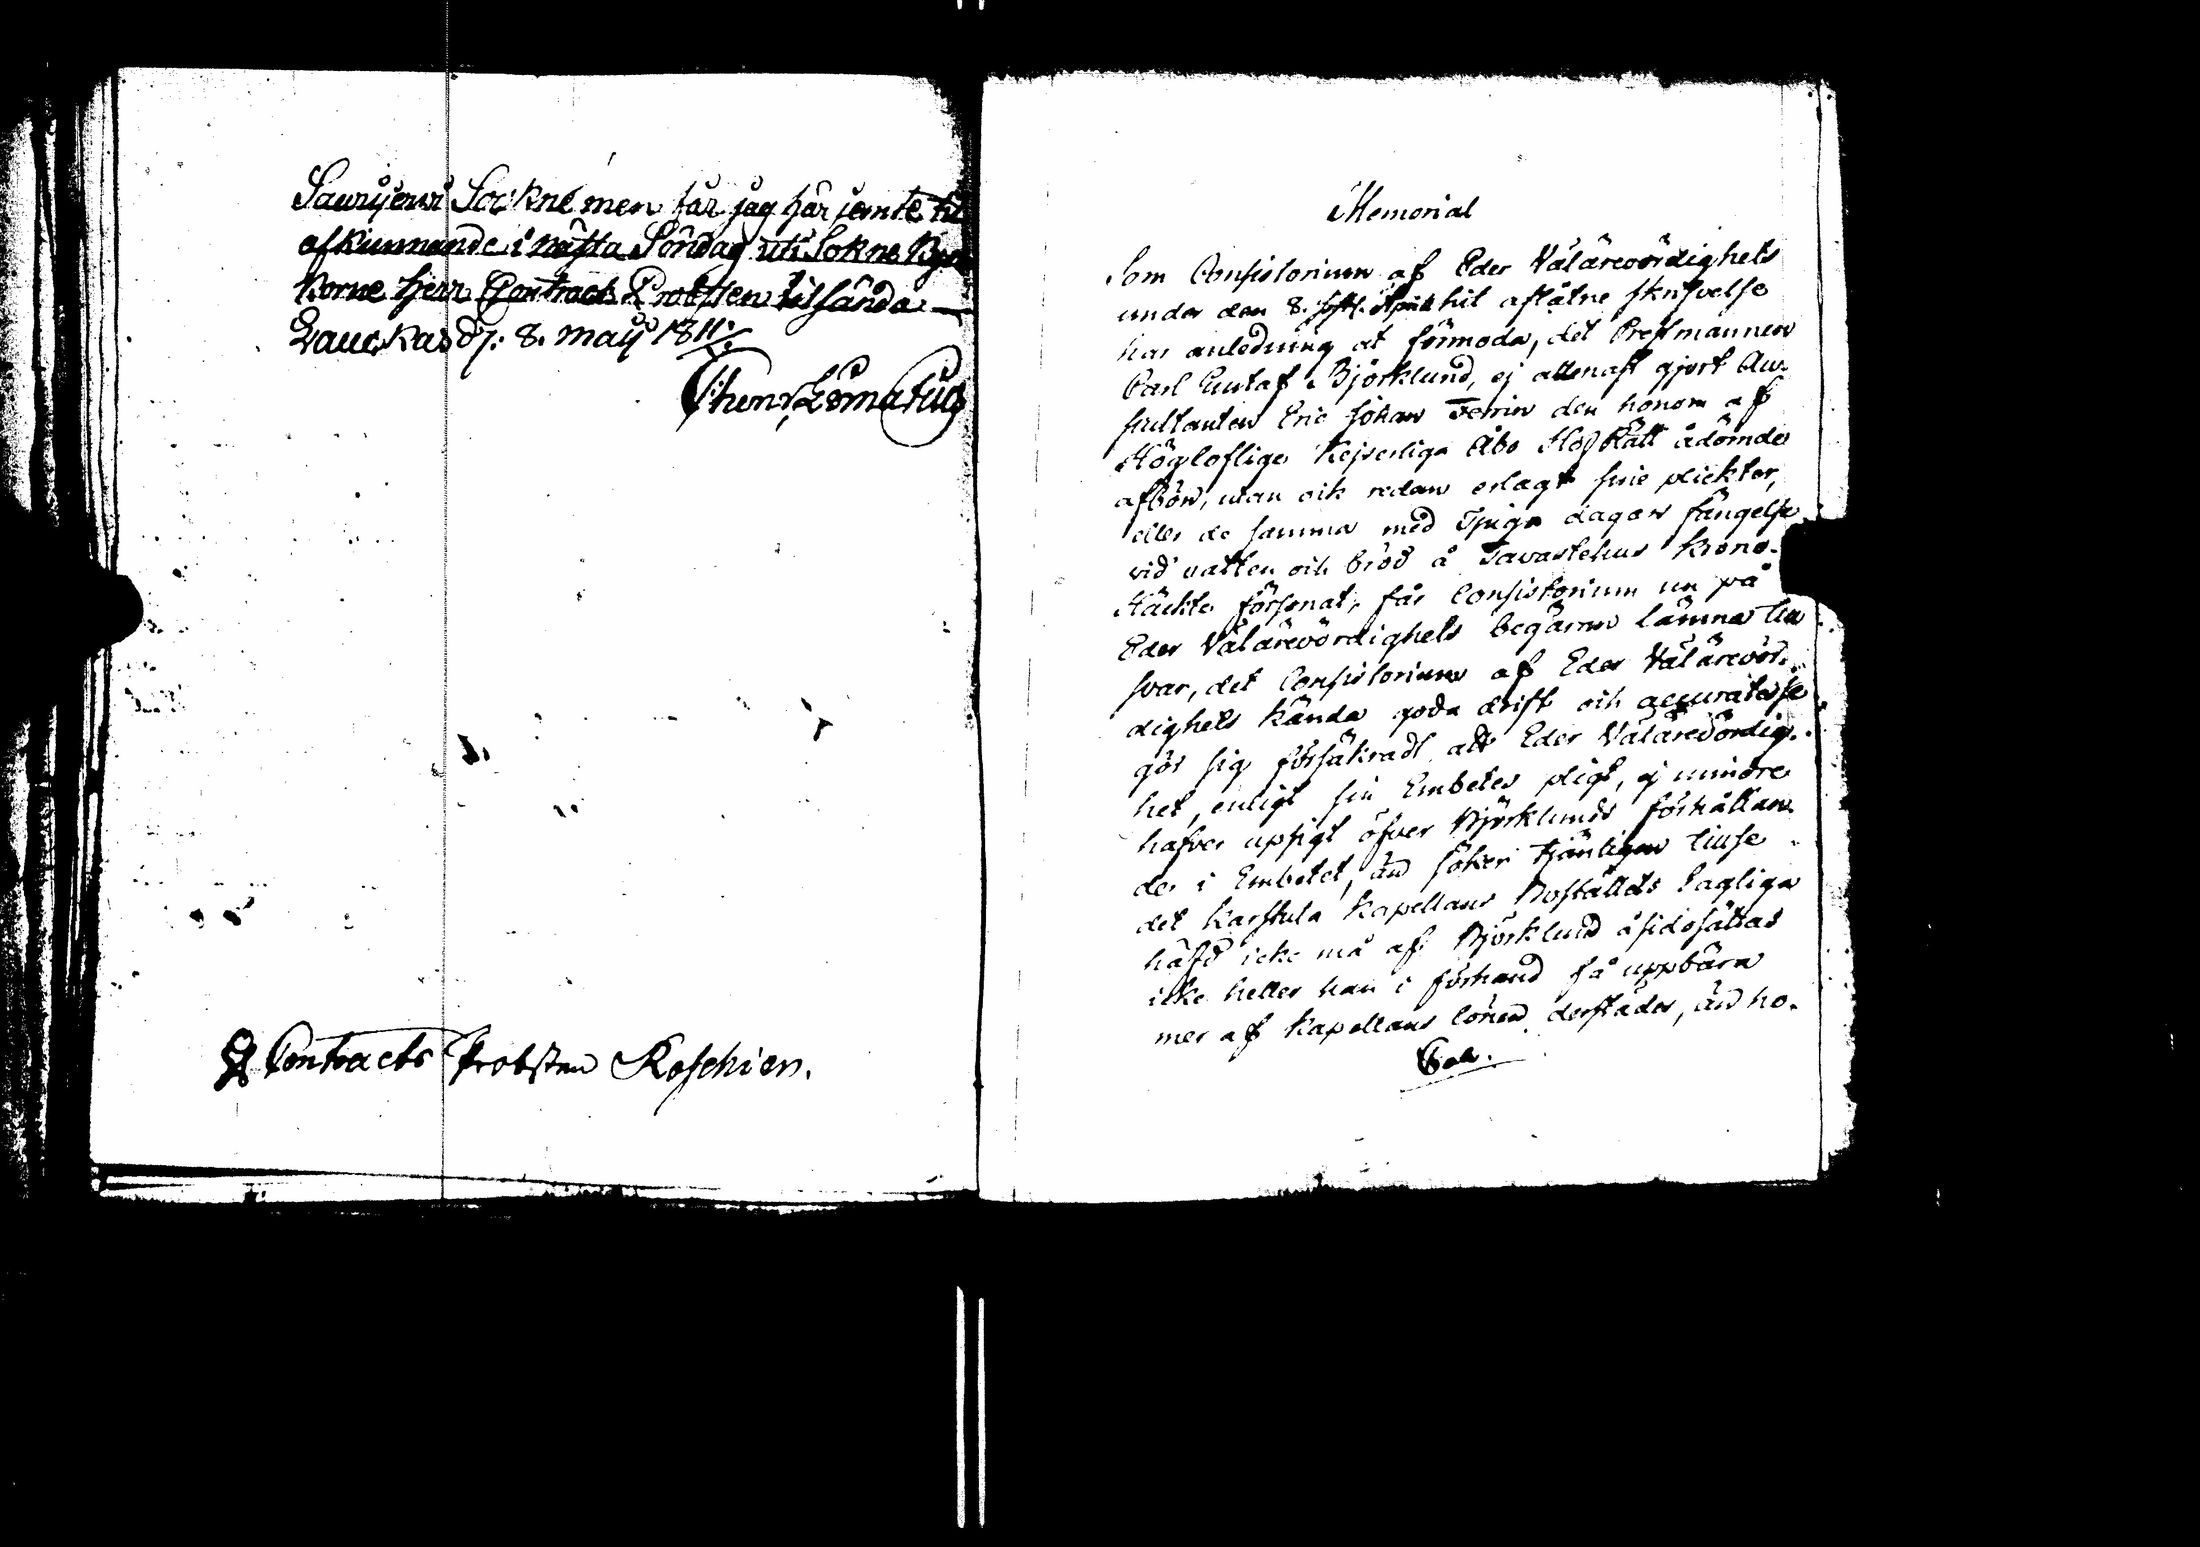 Saurijerwi Sockne men får jag här jemte til
afkunnande i nästa Söndag uti Sokne Kyr
korne Herr Contracts Probsten tilsända
d. 8. Maij 1811.
Contracts Probsten Roschier.
Memorial
Som Consistorium af Eder Välärevördighets
under den 8. sistl. April hit aflåtne skrifvelse
har anledning at förmoda, det Prestmannen
Carl Gustaf Björklund, ej allenast gjort Au-
scultanten Eric Johan Ferrin den honom af
Högloflige Kejserliga Åbo Hof Rätt ådömde
afbön, utan ock redan erlagt sine plickter,
eller de samma med Tjugo dagars fängelse
vid vatten och bröd å Tavastehus Krono-
Häckte försonat, får Consistorium nu på
Eder Välärevördighets begäran lämna
svar, det Consistorium af Eder Välärevör-
dighets kända goda drift och accuratesse
gör sig försäkradt att Eder Välärevördig-
het, enligt sin Embetes pligt, ej mindre
hafver upsigt öfver Björklunds förhållan-
de i Embetet, än söker tjänligen tillse
det Karstula Kapellans Boställets Lagliga
häfd icke må af Björklund åsidosättas
icke heller han i förhand få uppbära
mer af Kapellans lönen derstädes, än ho-